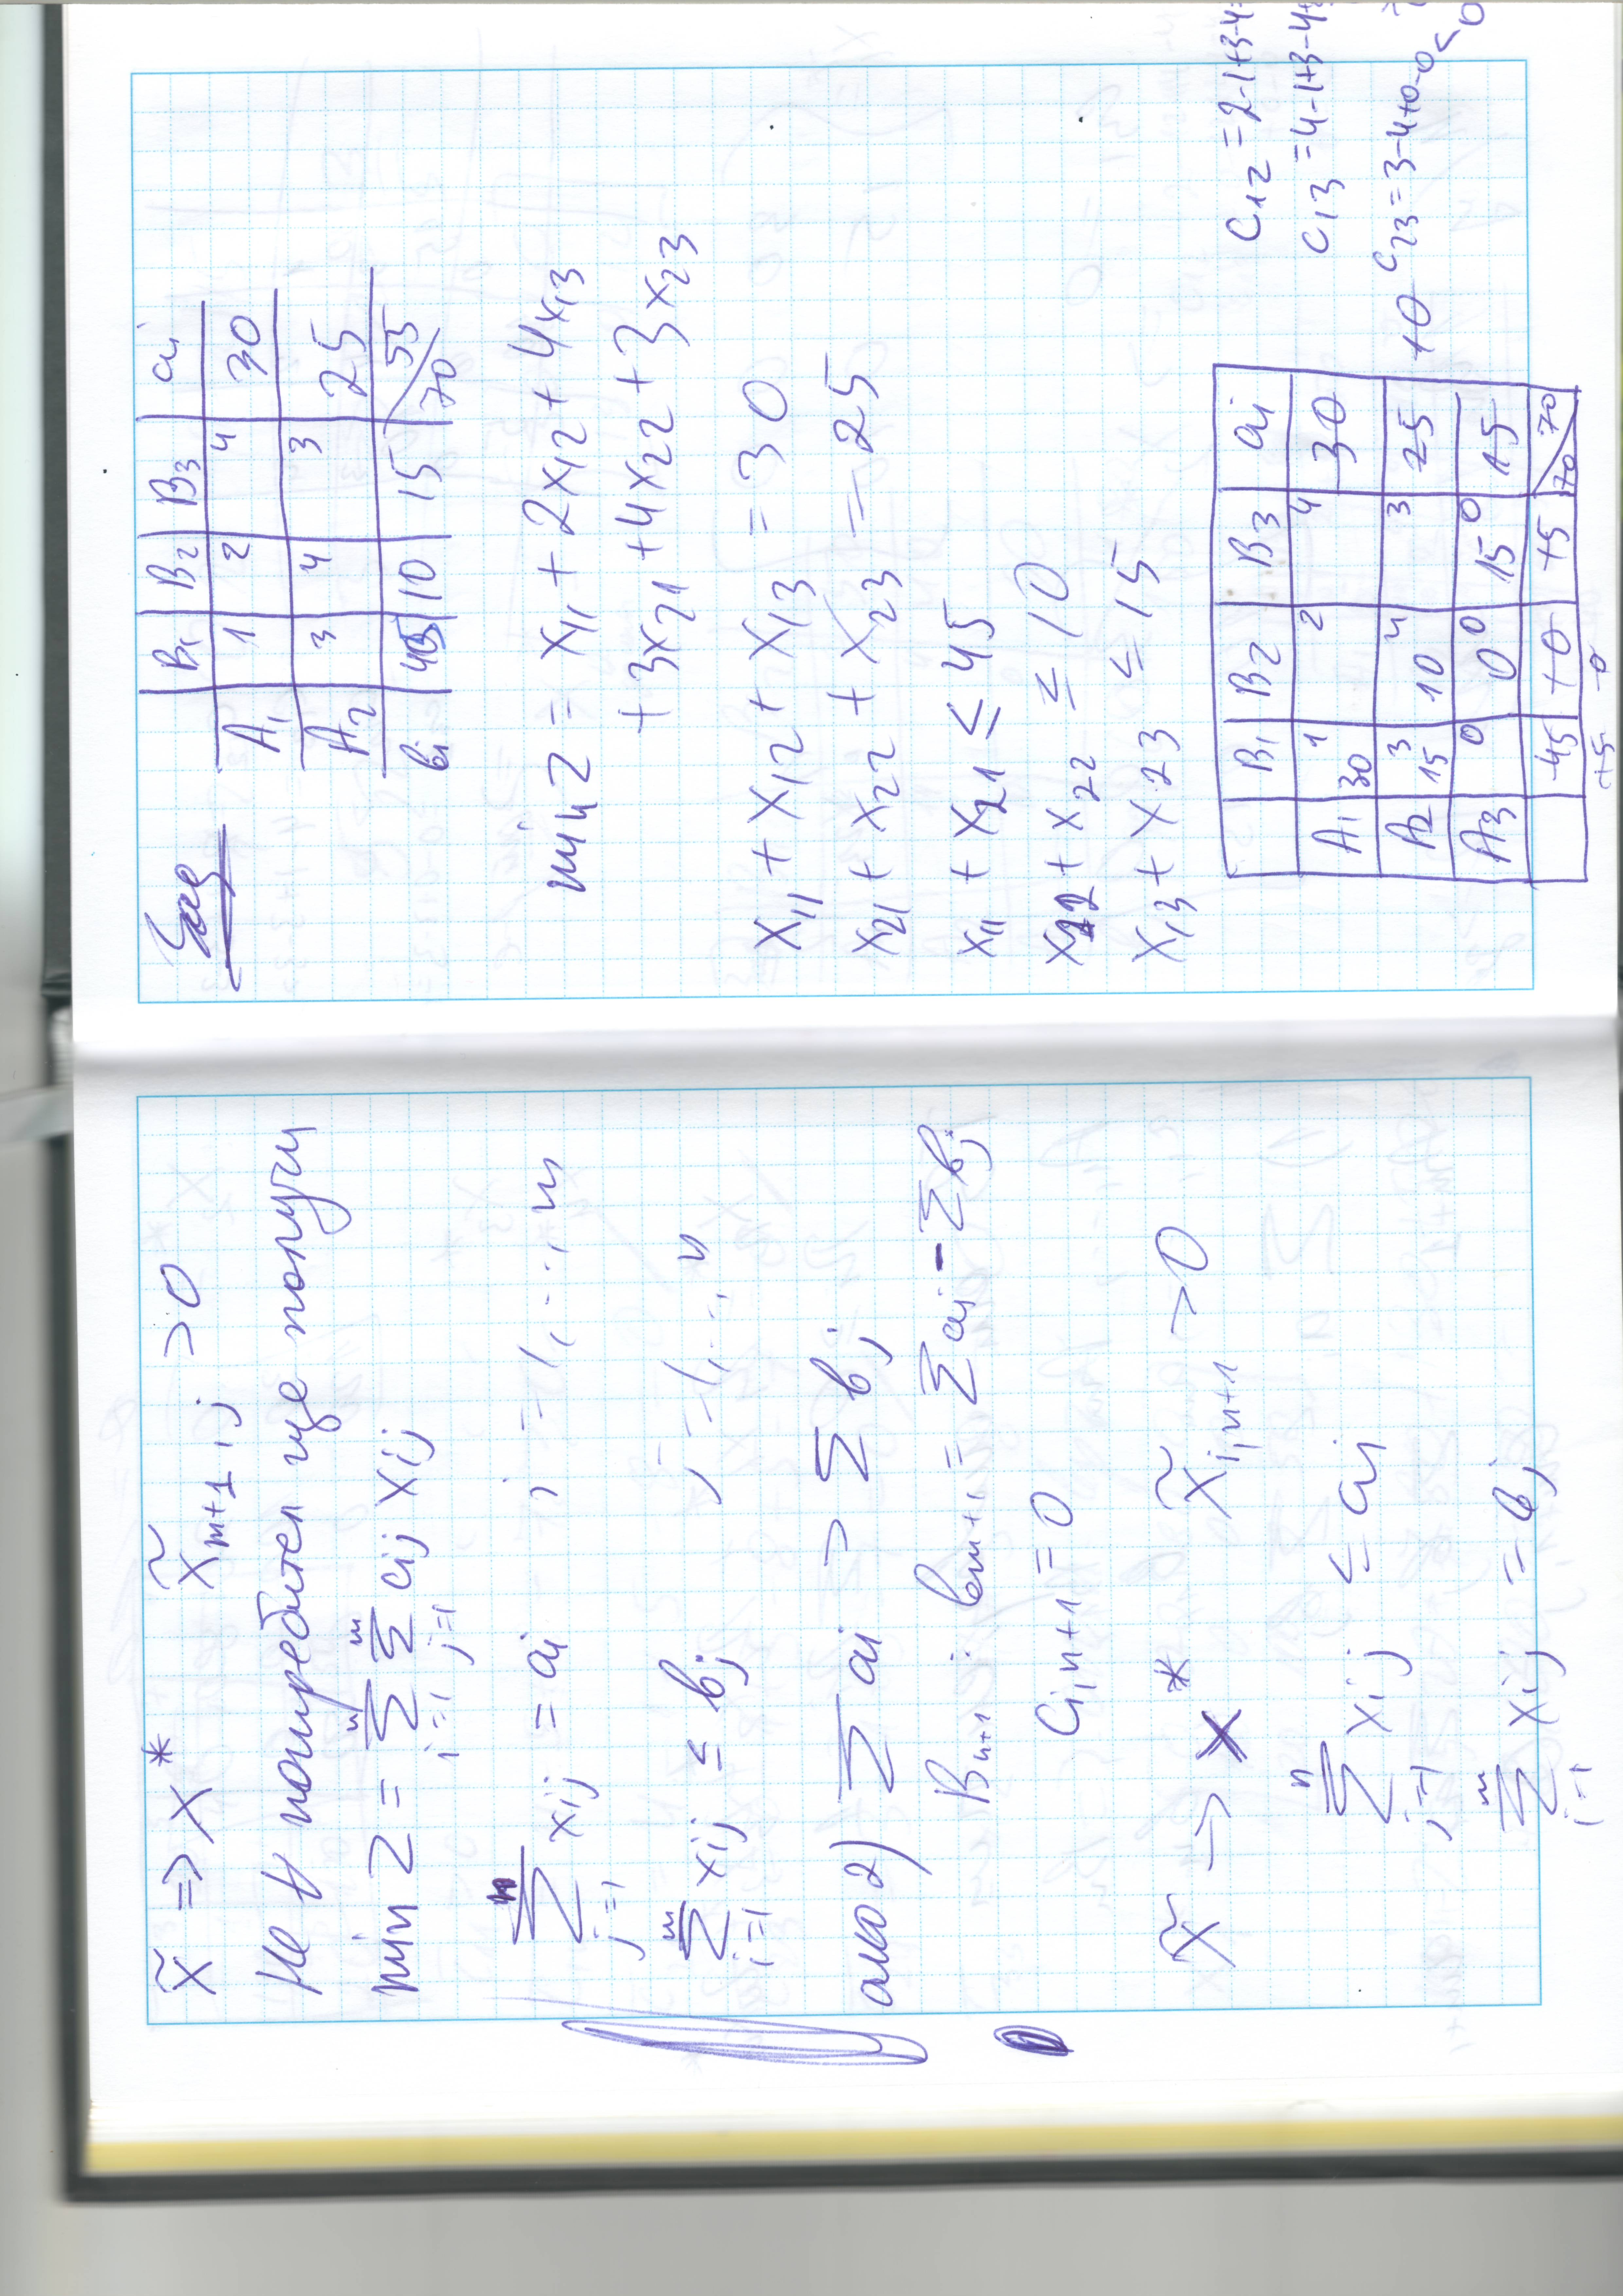 x̃ => x*   x̃ m+1,j > 0
Не В потребител ще получи
min Z = Σ(i=1..n) Σ(j=1..m) cij xij
Σ(j=1..n) xij = ai   i = 1, ..., m
Σ(i=1..m) xij ≤ bj   j = 1, ..., n
ако 2) Σ ai > Σ bj
Bn+1: bm+1 = Σ ai - Σ bj
ci,n+1 = 0
x̃ -> x*   x̃ i,n+1 > 0
Σ(j=1..n) xij ≤ ai
Σ(i=1..m) xij = bj
Зад
B1 B2 B3 ai
A1 1 2 4 30
A2 3 4 3 25
bi 45 10 15 70/55
min Z = x11 + 2x12 + 4x13
+ 3x21 + 4x22 + 3x23
x11 + x12 + x13 = 30
x21 + x22 + x23 = 25
x11 + x21 ≤ 45
x12 + x22 ≤ 10
x13 + x23 ≤ 15
B1 B2 B3 ai
A1 1 30 2 4 30
A2 3 15 4 10 3 25 10
A3 0 0 0 15 0 15
45 10 15 70/70
15 0
c12 = 2-1+3-4
c13 = 4-1+3-4
c23 = 3-4+0-0 < 0